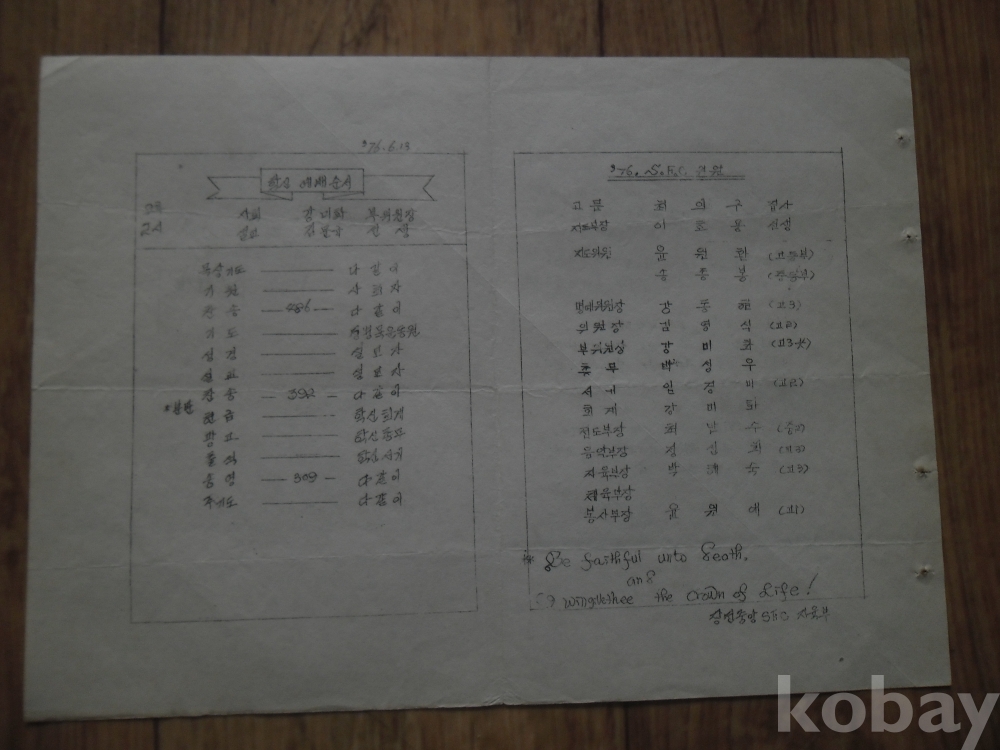 '76. 6. 13
학신 예배순서
사회 강미화 부위원장
설교 선생
묵상기도 ——— 다같이
기원 ——— 사회자
찬송 — 486 — 다같이
기도
성경 ——— 설교자
설교 ——— 설교자
찬송 — 392 — 다같이
헌금 ——— 학신회계
광고 ——— 학신총무
학신서기
송영 — 309 — 다같이
주기도 ——— 다같이
'76. S.F.C. 임원
고문 최의구 집사
지도부장 이호용 선생
지도위원 윤원환 (고등부)
송종봉 (중등부)
면려위원장 강동 (고3)
위원장 김영석 (고2)
부위원장 강미화
총무 박성우
서기 임경미 (고2)
회계 강미화
전도부장 최 수 (중3)
음악부장 정 희
지육부장 박 숙 (고3)
체육부장
봉사부장 윤원애 (고1)
※ Be faithful unto Death,
and
I will give thee the Crown of Life!
중앙 SFC 지육부
kobay